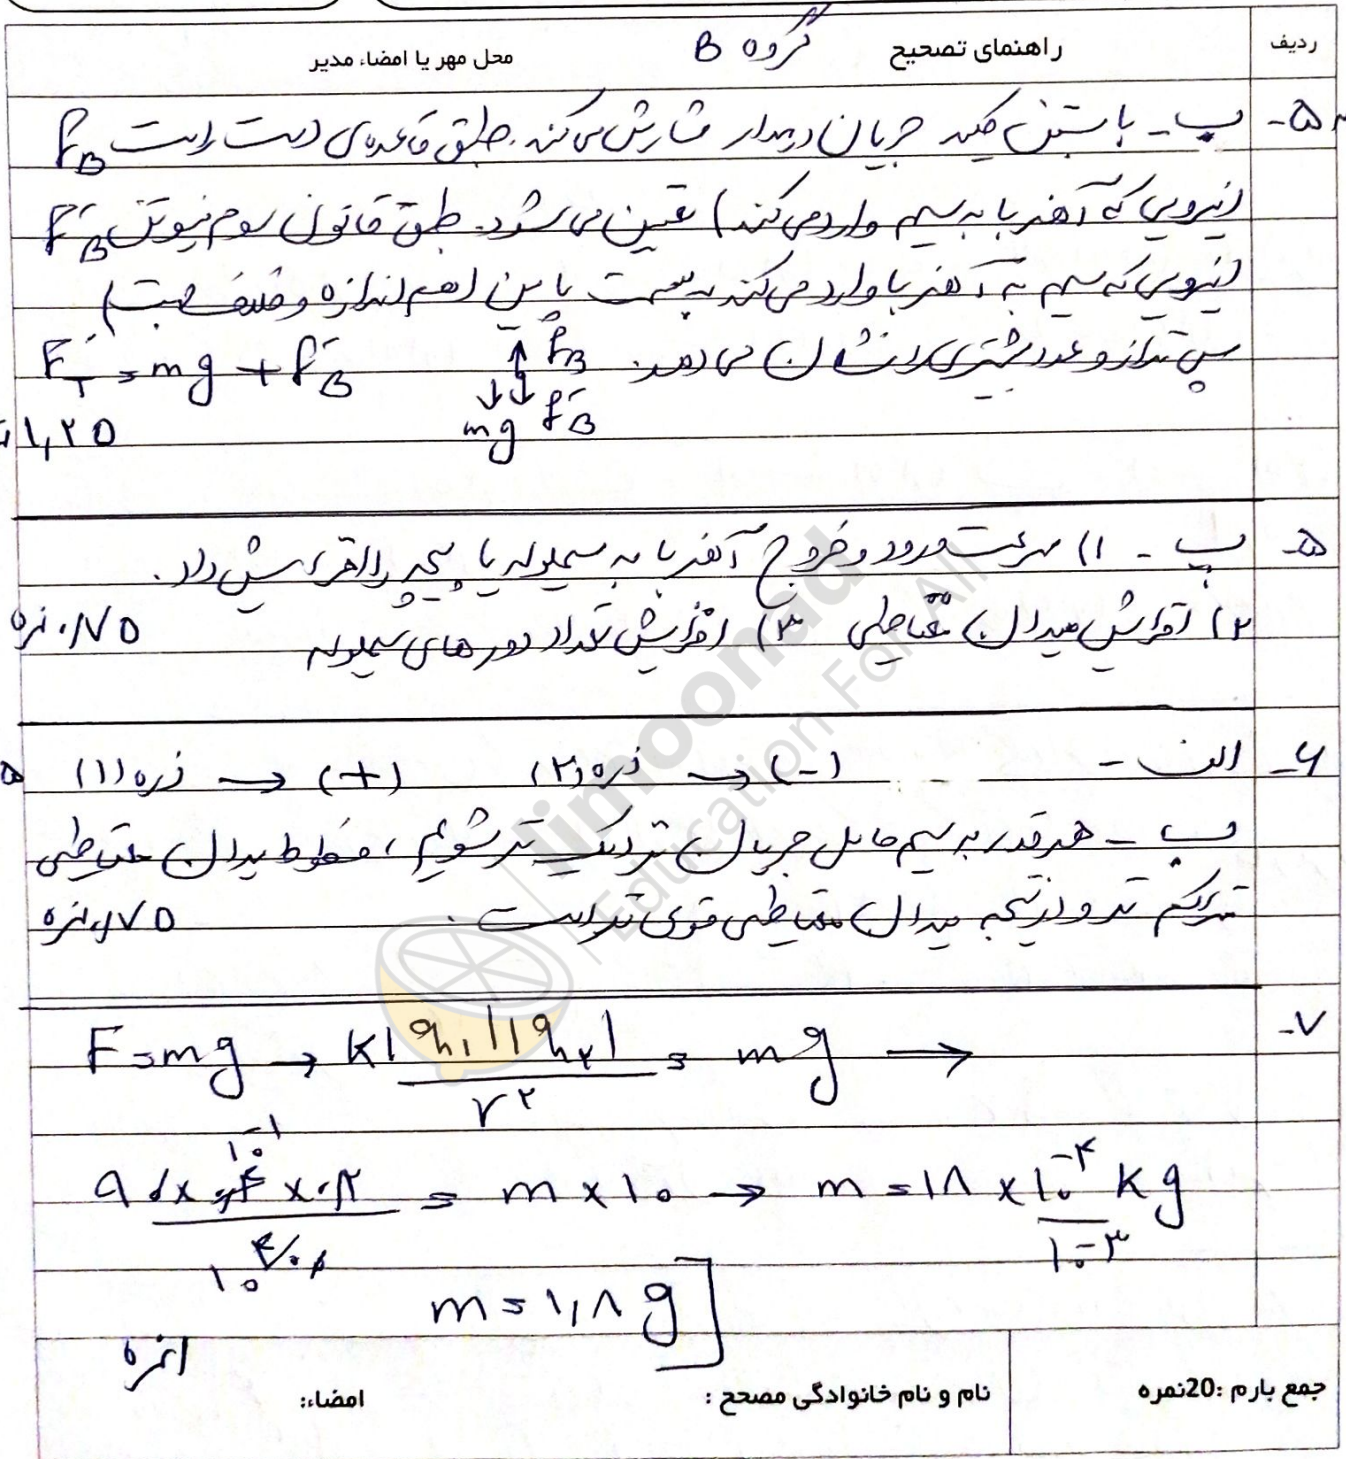 ردیف راهنمای تصحیح گروه B محل مهر یا امضاء مدیر
۵- ب- با بستن کلید جریان در مدار شارش می‌کند. طبق قاعده‌ی دست راست F_B
(نیرویی که آهنربا به سیم وارد می‌کند) تعیین می‌شود. طبق قانون سوم نیوتن F'_B
(نیرویی که سیم به آهنربا وارد می‌کند به سمت پایین (هم اندازه و خلاف جهت)
پس ترازو عدد بیشتری را نشان می‌دهد. ↑ F_B F_T = mg + F'_B
↓↓ mg F'_B
۱,۲۵
۵- پ - ۱) سرعت ورود و خروج آهنربا به سیملوله یا پیچه را افزایش داد.
۲) افزایش میدان مغناطیسی ۳) افزایش تعداد دورهای سیملوله ۰,۷۵ نمره
۶- الف - ذره (۲) → (-) ذره (۱) → (+)
ب - هر قدر به سیم حامل جریان نزدیک تر شویم، خطوط میدان مغناطیسی
متراکم تر و در نتیجه میدان مغناطیسی قوی تر است. ۰,۷۵ نمره
۷- F = mg → K|q₁||q₂| / r² = mg →
m × ۱۰ → m = ۱۸ × ۱۰⁻⁴ kg
۱۰⁻³
m = ۱,۸ g
۱ نمره
جمع بارم :20نمره نام و نام خانوادگی مصحح : امضاء:
limoonad
Education For All